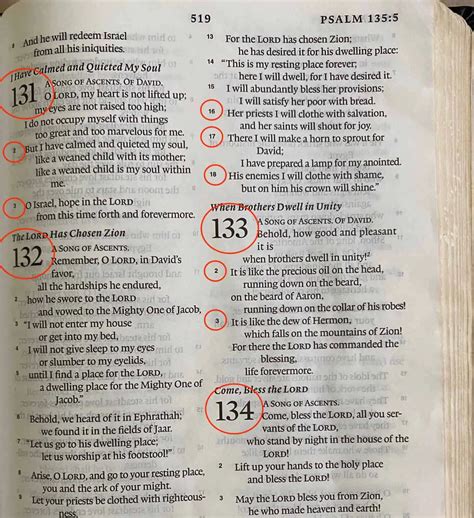 519
PSALM 135:5
8 And he will redeem Israel
from all his iniquities.
I Have Calmed and Quieted My Soul
131 A SONG OF ASCENTS. OF DAVID.
O LORD, my heart is not lifted up;
my eyes are not raised too high;
I do not occupy myself with things
too great and too marvelous for me.
2 But I have calmed and quieted my soul,
like a weaned child with its mother;
like a weaned child is my soul within
me.
3 O Israel, hope in the LORD
from this time forth and forevermore.
The LORD Has Chosen Zion
132 A SONG OF ASCENTS.
Remember, O LORD, in David's
favor,
all the hardships he endured,
2 how he swore to the LORD
and vowed to the Mighty One of Jacob,
3 "I will not enter my house
or get into my bed,
4 I will not give sleep to my eyes
or slumber to my eyelids,
5 until I find a place for the LORD,
a dwelling place for the Mighty One of
Jacob."
6 Behold, we heard of it in Ephrathah;
we found it in the fields of Jaar.
7 "Let us go to his dwelling place;
let us worship at his footstool!"
8 Arise, O LORD, and go to your resting place,
you and the ark of your might.
9 Let your priests be clothed with righteous-
ness,
13 For the LORD has chosen Zion;
he has desired it for his dwelling place:
14 "This is my resting place forever;
here I will dwell, for I have desired it.
15 I will abundantly bless her provisions;
I will satisfy her poor with bread.
16 Her priests I will clothe with salvation,
and her saints will shout for joy.
17 There I will make a horn to sprout for
David;
I have prepared a lamp for my anointed.
18 His enemies I will clothe with shame,
but on him his crown will shine."
When Brothers Dwell in Unity
133 A SONG OF ASCENTS. OF DAVID.
Behold, how good and pleasant
it is
when brothers dwell in unity!
2 It is like the precious oil on the head,
running down on the beard,
on the beard of Aaron,
running down on the collar of his robes!
3 It is like the dew of Hermon,
which falls on the mountains of Zion!
For there the LORD has commanded the
blessing,
life forevermore.
Come, Bless the LORD
134 A SONG OF ASCENTS.
Come, bless the LORD, all you ser-
vants of the LORD,
who stand by night in the house of the
LORD!
2 Lift up your hands to the holy place
and bless the LORD!
3 May the LORD bless you from Zion,
he who made heaven and earth!